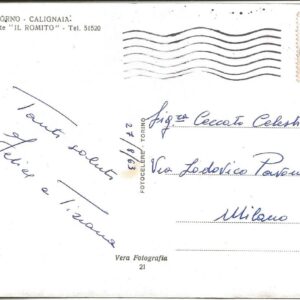 ORNO - CALIGNAIA
te "IL ROMITO" - Tel. 51520
Tanti saluti
Felice e Tiziana
27/8/63
FOTOCELERE - TORINO
Sig.ra Ceccato Celest
Via Lodovico Pavon
Milano
Vera Fotografia
21